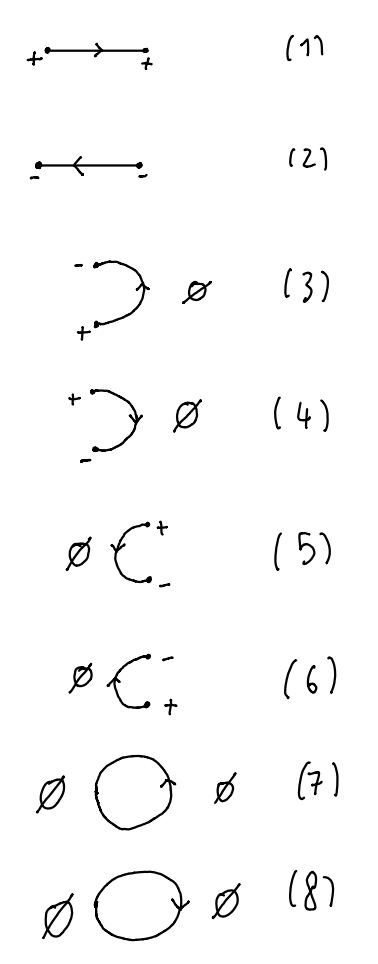 + + (1)
- - (2)
- + ∅ (3)
+ - ∅ (4)
∅ + - (5)
∅ - + (6)
∅ ∅ (7)
∅ ∅ (8)